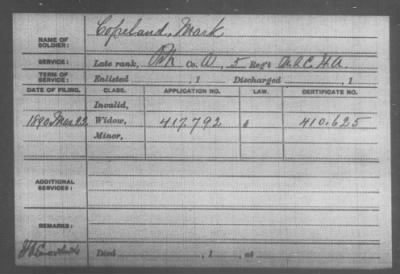 Copeland, Mark
NAME OF
SOLDIER:
SERVICE: Late rank, Pvt Co. A, 5 Reg't U.S.C.H.A.
TERM OF
SERVICE: Enlisted , 1 Discharged , 1
DATE OF FILING. CLASS. APPLICATION NO. LAW. CERTIFICATE NO.
Invalid,
1890 Mar 22 Widow, 417,792 410.625
Minor,
ADDITIONAL
SERVICES:
REMARKS:
Died , 1 , at